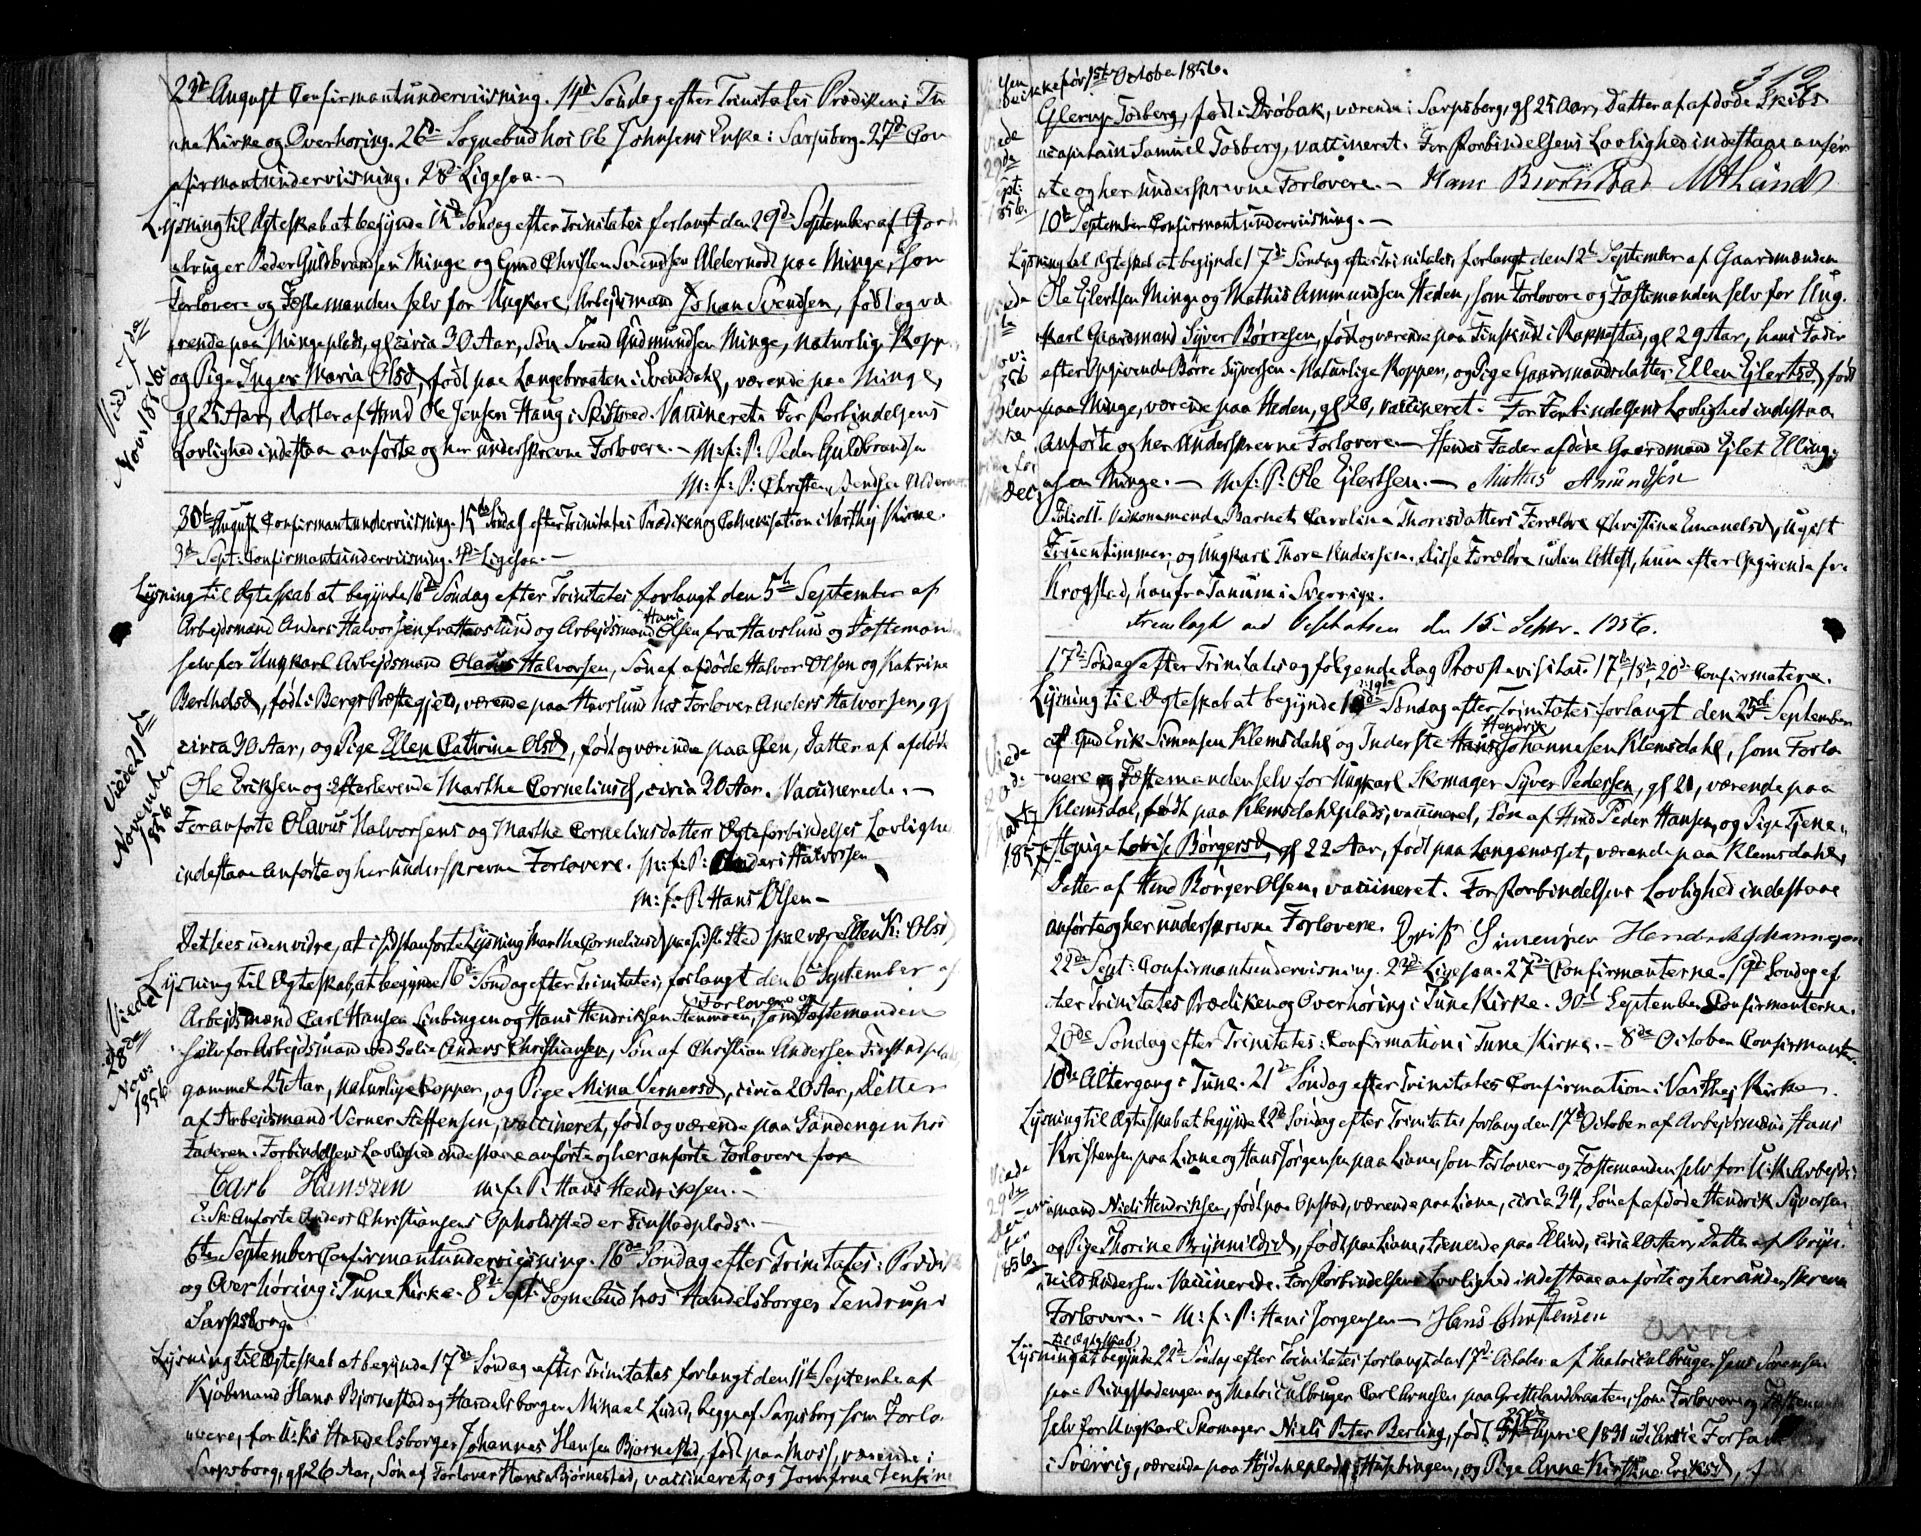 23de August Confirmantundervisning. 14de Søndag efter Trinitatis Prædiken i Tu
ne Kirke og Overhøring. 26de Sognebud hos Ole Johnsens Enke i Sarpsborg. 27de Con
firmantundervisning. 28de Ligesaa.—
Lysning til Ægteskab at begynde 15de Søndag efter Trinitatis forlangt den 29de September af Gaard
bruger Peder Guldbrandsen Minge og Gmd Christen Svendsen Aldernod paa Minge, som
Forlovere og Fæstemanden selv for Ungkarl, Arbejdsmand Johan Svendsen, født og væ
rende paa Mingeplads, gl circa 30 Aar, Søn Svend Gudmundsen Minge, naturlige Kopper
og Pige Inger Maria Olsd, født paa Langebraaten i Svenddahl, værende paa Minge,
gl 25 Aar, Datter af Hmd Ole Jensen Haug i Skiftved. Vaccineret. For Forbindelsens
Lovlighed indestaa anførte og her underskrevne Forlovere.— M:f:P: Peder Guldbrandsen
M:f:P: Christen Svendsen
Viede 7de
Nov: 1856.
30te August Confirmantundervisning. 15de Søndag efter Trinitatis Prædiken og Catechisation i Varthej Kirke.
3de Sept: Confirmantundervisning. 4de Ligesaa.—
Lysning til Ægteskab at begynde 16de Søndag efter Trinitatis forlangt den 5te September af
Arbejdsmand Anders Halvorsen fra Havslund og Arbejdsmand Hans Olsen fra Havslund og Fæstemanden
selv for Ungkarl Arbejdsmand Olaus Halvorsen, Søn af afdøde Halvor Olsen og Katrine
Berthelsd, født i Bergs Præstegjeld, værende paa Havslund hos Forlover Anders Halvorsen, gl
circa 30 Aar, og Pige Ellen Cathrine Olsd, født og værende paa Øen, Datter af afdøde
Ole Eriksen og efterlevende Marthe Cornelius, circa 20 Aar. Vaccinerede.—
For anførte Olavus Halvorsens og Marthe Corneliusdatters Ægteforbindelses Lovlighed
indestaae anførte og her underskrevne Forlovere. M:f:P: Anders Halvorsen
M:f:P. Hans Olsen—
Viede 21de
November
1856
Det sees uden videre, at i sidstanførte Lysning Marthe Corneliusd paa sidste Sted skal være Ellen K: Olsd
Lysning til Ægteskab, at begynde 16de Søndag efter Trinitatis, forlangt den 6te September af
Arbejdsmænd Carl Hansen og Hans Hendriksen Stenmoen, som Forlovere og Fæstemanden
selv for Arbejdsmand ved Anders Christiansen, Søn af Christian Andersen
gammel 25 Aar, naturlige Kopper, og Pige Mina Vernersd, circa 20 Aar, Datter
af Arbejdsmand Verner Steffensen, vaccineret, født og værende paa Sandengen hos
Faderen. Forbindelsens Lovlighed indestaae anførte og her anførte Forlovere for
Carl Hanssen M:f:P. Hans Hendriksen.—
Viede
28de
Nov:
1856.
E: Sk: Anførte Anders Christiansens Opholdssted er Finstadplads.—
6te September Confirmantundervisning. 16de Søndag efter Trinitatis: Prædiken
og Overhøring i Tune Kirke. 8de Sept: Sognebud hos Handelsborger Tendrup i
Sarpsborg.
Lysning til Ægteskab at begynde 17de Søndag efter Trinitatis forlangt den 11te September af
Kjøbmand Hans Bjørnestad og Handelsborger Mikael Lund, begge af Sarpsborg som Forlo-
vere, for U:k: Handelsborger Johannes Hansen Bjørnestad, født paa Moss, værende i
Sarpsborg, gl 26 Aar, Søn af Forlover Hans Bjørnestad, vaccineret, og Jomfrue Jensine
319
før 1ste October 1856.
Glerup Tosberg, født i Drøbak, værende i Sarpsborg, gl 25 Aar, Datter af afdøde Skibs
capitain Samuel Tosberg, vaccineret. For Forbindelsens Lovlighed indestaae anfør
te og her underskrevne Forlovere.— Hans Bjørnstad M Lund
10de September Confirmantundervisning.—
Lysning til Ægteskab at begynde 17de Søndag efter Trinitatis, forlangt den 12te September af Gaardmændene
Ole Ejlertsen Minge og Mathis Ammundsen Heden, som Forlovere og Fæstemanden selv for Ung-
karl Gaardmand Syver Børresen, født og værende paa i Rakkestad, gl 29 Aar, hans Fader
efter Opgivende Børre Syversen. Naturlige Kopper, og Pige Gaardmandsdatter Ellen Ejlertsd, født
paa Minge, værende paa Heden, gl 28, vaccineret. For Forbindelsens Lovlighed indestaa
anførte og her underskrevne Forlovere.— Hendes Fader afdøde Gaardmand Ejlert Elling-
sen Minge.— M:f:P: Ole Ejlertsen.— Mathis Amundsen
Vedkommende Barnet Carolina Thorisdatters Forældre Christina Emanelsd, ugift
Fruentimmer, og Ungkarl Thore Andersen. Disse Forældre uden Attest, hun efter Opgivende fra
Krogstad, han fra Tanum i Sverrige.
Fremlagt ved Visitatsen den 15 Septbr. 1856.
17de Søndag efter Trinitatis og følgende Dag Provstevisitats. 17de, 18de, 20de Confirmaterer.
Lysning til Ægteskab at begynde Søndag efter Trinitatis forlangt den 23de September
af Gmd Erik Simensen Klemsdahl og Inderste Hendrik Johannesen Klemsdahl, som Forlo
vere og Fæstemanden selv for Ungkarl Skomager Syver Pedersen, gl 21, værende paa
Klemsdal, født paa Klemsdahlplads, vaccineret, Søn af Hmd Peder Hansen, og Pige Tjene-
stepige Lovise Børgersd, gl 22 Aar, født paa Langemosset, værende paa Klemsdahl,
Datter af Hmd Børger Olsen, vaccineret. For Forbindelsens Lovlighed indestaae
anførte og her underskrevne Forlovere. Erik Simensen Hendrik Johannesen
Viede
1857
22de Sept: Confirmantundervisning. 23de Ligesaa. 27de Confirmanterne. 19de Søndag ef
ter Trinitatis Prædiken og Overhøring i Tune Kirke. 30te September Confirmanterne.
20de Søndag efter Trinitatis: Confirmation i Tune Kirke.— 8de October Confirmanter.
10de Altergang i Tune. 21de Søndag efter Trinitatis Confirmation i Varthej Kirke.
Lysning til Ægteskab at begynde 22de Søndag efter Trinitatis forlangt den 17de October af Arbejdsmænd Hans
Kristensen paa Liane og Hans Jørgensen paa Liane, som Forlovere og Fæstemanden selv for U:k: Arbejds-
mand Niels Hendriksen, født paa Opstad, værende paa Liane, circa 34, Søn af afdøde Hendrik Syversen
og Pige Thorine Brynnildsd, født paa Liane, tienende paa Elind, circa 20 Aar, Datter af Bryn-
nild Vaccinerede. For Forbindelsens Lovlighed indestaae anførte og her underskrevne
Forlovere.— M:f:P: Hans Jørgensen— Hans Christensen
Viede
29de
1856.
Lysning til Ægteskab at begynde 22de Søndag efter Trinitatis forlangt den 17de October af Matriculbruger Hans Sørensen
paa Ringstadengen og Matriculbruger Carl Arnesen paa Grettelandbraaten, som Forlovere og Fæstemanden
selv for Ungkarl Skomager Niels Peter Berling, født April 1831
i Sverrig, værende paa og Pige Anne Kirstine Eriksd, født